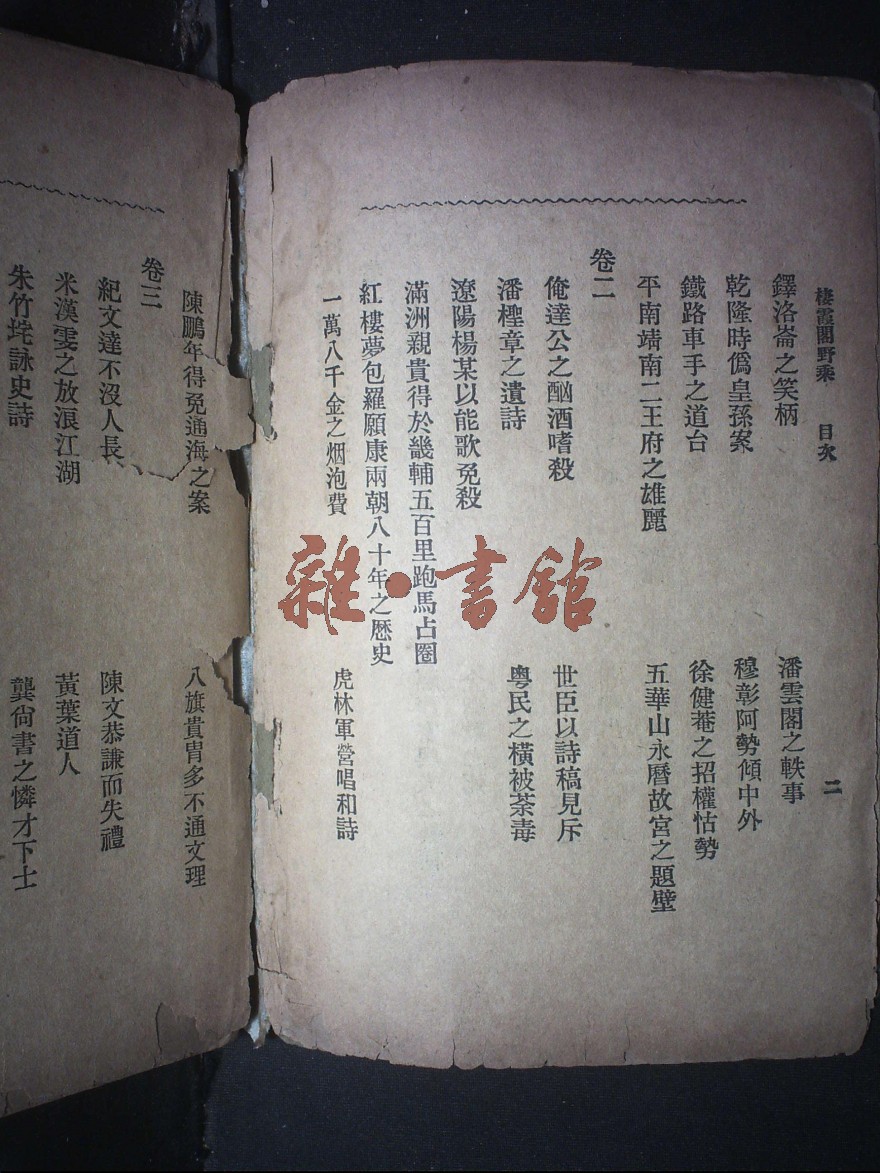 棲霞閣野乘 目次 二
鐸洛崙之笑柄 潘雲閣之軼事
乾隆時僞皇孫案 穆彰阿勢傾中外
鐵路車手之道台 徐健菴之招權怙勢
平南靖南二王府之雄麗 五華山永曆故宮之題壁
卷二
俺達公之酗酒嗜殺 世臣以詩稿見斥
潘檉章之遺詩 粵民之橫被荼毒
遼陽楊某以能歌免殺
滿洲親貴得於畿輔五百里跑馬占圈
紅樓夢包羅順康兩朝八十年之歷史
一萬八千金之烟泡費 虎林軍營唱和詩
陳鵬年得免通海之案 八旗貴胄多不通文理
卷三
紀文達不沒人長 陳文恭謙而失禮
米漢雯之放浪江湖 黃葉道人
朱竹垞詠史詩 龔尙書之憐才下士
雜·書館